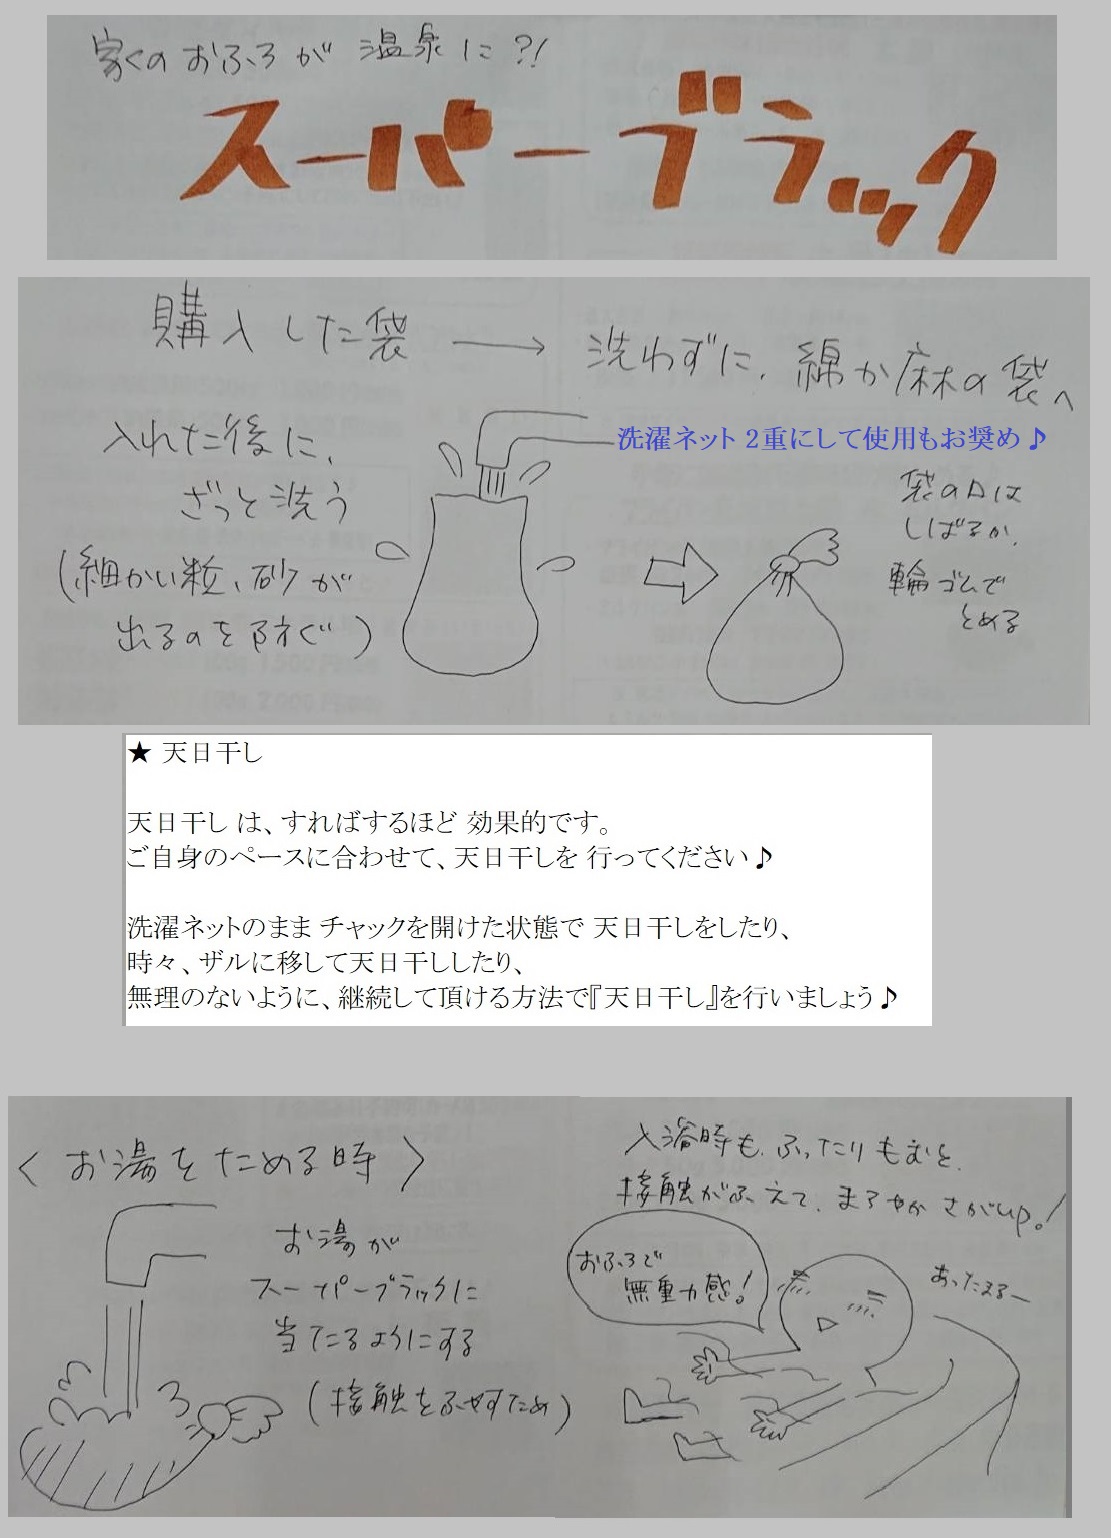 家くのおふろが 温泉に?!
スーパーブラック
購入した袋 → 洗わずに、綿か麻の袋へ
入れた後に、
ざっと洗う
(細かい粒、砂が
出るのを防ぐ)
洗濯ネット 2重にして使用もお奨め♪
袋の口は
しばるか、
輪ゴムで
とめる
★ 天日干し
天日干し は、すればするほど 効果的です。
ご自身のペースに合わせて、天日干しを 行ってください♪
洗濯ネットのまま チャックを開けた状態で 天日干しをしたり、
時々、ザルに移して天日干ししたり、
無理のないように、継続して頂ける方法で『天日干し』を行いましょう♪
〈お湯をためる時〉
お湯が
スーパーブラックに
当たるようにする
(接触をふやすため)
入浴時も、ふったりもむと、
接触がふえて、まろやかさがup。!
おふろで
無重力感!
あったまるー